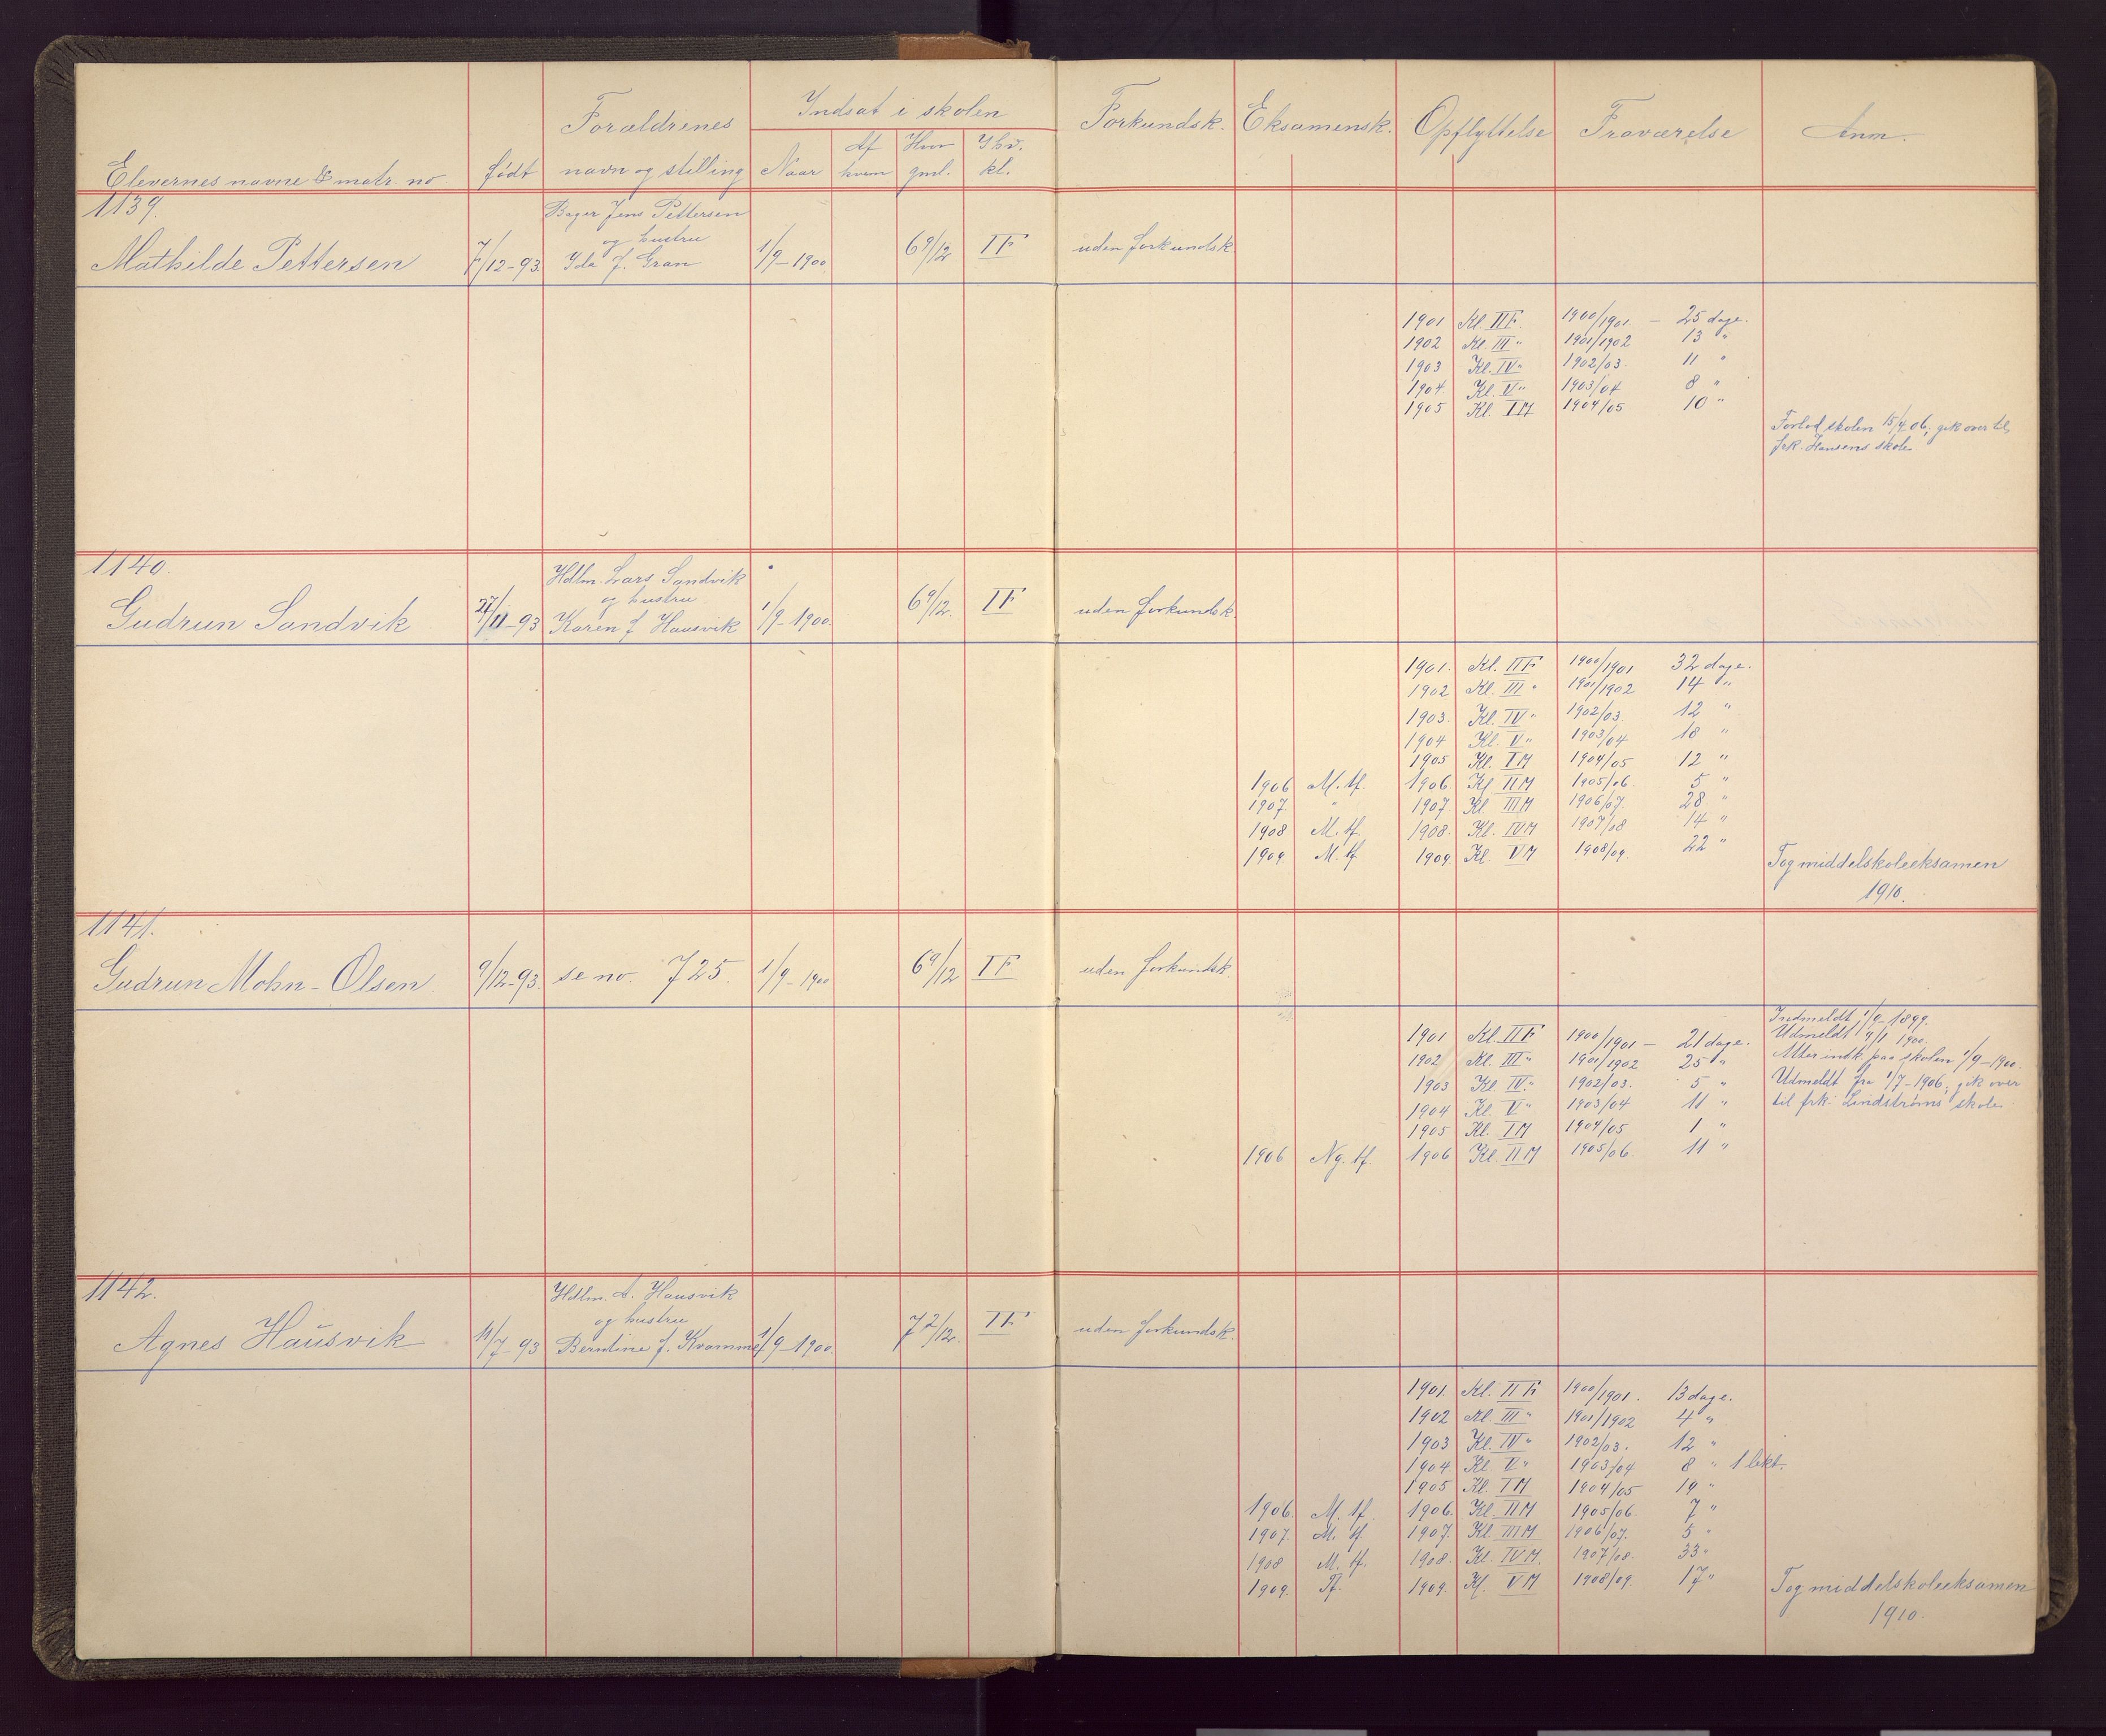 Elevernes navne & matr. no
født
Forældrenes
navn og stilling
Indsat i skolen
Naar
Af
hvem
Hvor
gml.
I hv.
kl.
Forkundsk.
Eksamensk.
Opflyttelse
Fraværelse
Anm.
1139.
Mathilde Pettersen
7/12-93.
Bager Jens Pettersen
og hustru
Ida f. Gran
1/9-1900
6 9/12
I F
uden forkundsk.
1901 Kl. II F. 1900/1901 — 25 dage.
1902 Kl. III " 1901/1902 13 "
1903 Kl. IV " 1902/03. 11 "
1904. Kl. V " 1903/04 8 "
1905 Kl. I M 1904/05 10 "
Forlod skolen 15/4 06; gik over til
frk. Hansens skole
1140.
Gudrun Sandvik
27/11-93
Hdlm. Lars Sandvik
og hustru
Karen f. Hausvik
1/9-1900.
6 9/12.
I F
uden forkundsk.
1901. Kl. II F 1900/1901 32 dage.
1902 Kl. III " 1901/1902 14 "
1903. Kl. IV " 1902/03. 12 "
1904 Kl. V " 1903/04 18 "
1905 Kl. I M 1904/05 12 "
1906 M. tf. 1906. Kl. II M 1905/06. 5 "
1907 " 1907 Kl. III M 1906/07. 28 "
1908 M. tf. 1908. Kl. IV M 1907/08 14 "
1909. M. tf 1909. Kl. V M 1908/09. 22 "
Tog middelskoleeksamen
1910.
1141.
Gudrun Mohn-Olsen.
9/12-93.
se no. 725.
1/9-1900
6 9/12
I F
uden forkundsk.
1901 Kl. II F 1900/1901 — 21 dage.
1902 Kl. III " 1901/1902 25 "
1903 Kl. IV. " 1902/03. 5 "
1904 Kl. V " 1903/04 11 "
1905 Kl. I M 1904/05 1 "
1906 Ng. tf. 1906 Kl. II M 1905/06. 11 "
Indmeldt 1/9-1899.
Udmeldt 1900.
Atter indk. paa skolen 1/9-1900.
Udmeldt fra 1/7-1906; gik over
til frk. Lindstrøms skole
1142.
Agnes Hausvik
11/7-93
Hdlm. A. Hausvik
og hustru
Berntine f. Kvamme
1/9-1900.
7 2/12.
I F
uden forkundsk.
1901. Kl. II F 1900/1901. 13 dage.
1902 Kl. III " 1901/1902 4 "
1903 Kl. IV " 1902/03. 12 "
1904 Kl. V " 1903/04 8 " 1 lekt.
1905 Kl. I M 1904/05 19 "
1906. M. tf. 1906. Kl. II M 1905/06. 7 "
1907. M. tf 1907. Kl. III M 1906/07. 5 "
1908 M. tf. 1908. Kl. IV M. 1907/08. 33 "
1909. Tf. 1909. Kl. V M 1908/09. 17 "
Tog middelskoleeksamen
1910.